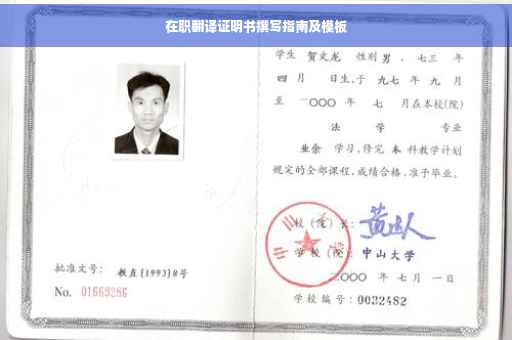 在职翻译证明书撰写指南及模板
学生 贺文龙 性别 男 、七三 年
四 月 日生,于 九七 年 九 月
至 二〇〇〇 年 七 月在本校(院)
法 学 专业
业余 学习,修完 本 科教学计划
规定的全部课程,成绩合格,准予毕业。
校(院)长:
学校(院): 中山大学
二〇〇〇 年 七月 一日
学校编号:0032482
批准文号: 教直[1993]8号
No. 01663286